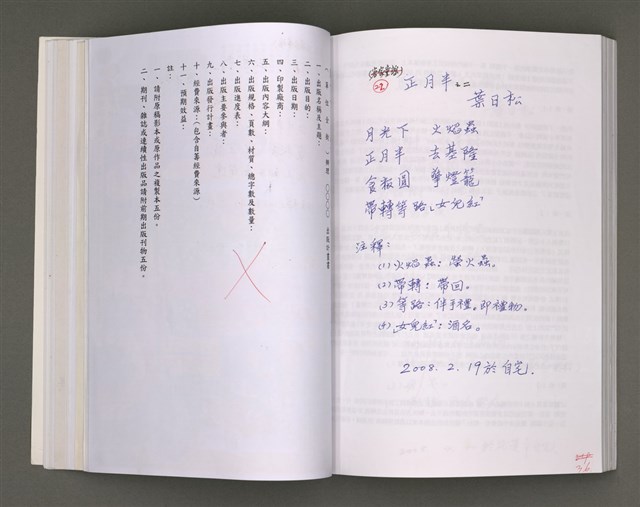 一、出版名稱及主題：
二、出版目的：
三、出版日期：
四、印製廠商：
五、出版內容大綱：
六、出版規格、頁數、材質、總字數及數量：
七、出版進度表：
八、出版主要參與者：
九、出版發行計畫：
十、經費來源：(包含自籌經費來源)
十一、預期效益：
註：
一、請附原稿影本或原作品之複製本五份。
二、期刊、雜誌或連續性出版品請附前期出版刊物五份。
(客家童謠)
正月半之二
葉日松
月光下 火焰蟲
正月半 去基隆
食粄圓 擎燈籠
帶轉等路「女兒紅」
注釋：
(1)火焰蟲：螢火蟲。
(2)帶轉：帶回。
(3)等路：伴手禮。即禮物。
(4)「女兒紅」：酒名。
2008.2.19於自宅.
36